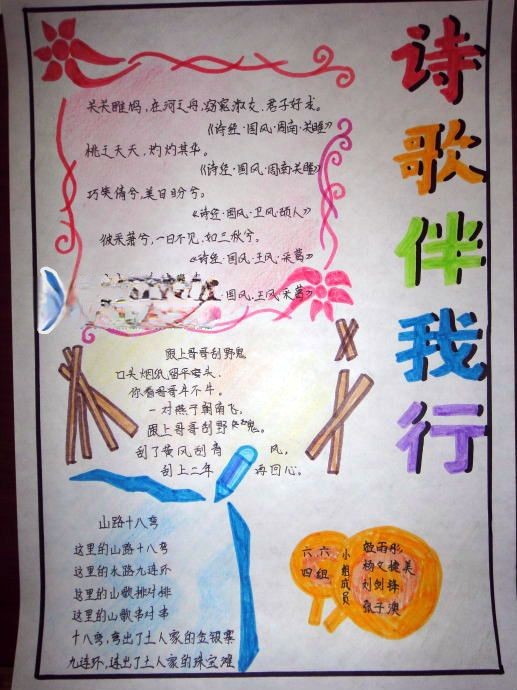 诗歌伴我行
关关雎鸠,在河之舟,窈窕淑女,君子好逑。
《诗经·国风·周南·关雎》
桃之夭夭,灼灼其华。
《诗经·国风·周南关雎》
巧笑倩兮,美目盼兮。
《诗经·国风·卫风·硕人》
彼采萧兮,一日不见,如三秋兮。
《诗经·国风·王风·采葛》
国风·王风·采葛》
跟上哥哥刮野鬼
口头烟纸留平
你看哥哥牛不牛。
一对燕子朝南飞,
跟上哥哥刮野鬼。
刮了黄风刮青风,
刮上二年再回心。
山路十八弯
这里的山路十八弯
这里的水路九连环
这里的山歌排对排
这里的山歌串对串
十八弯,弯出了土人家的金银寨
九连环,连出了土人家的珠宝滩
六六
四组
小组成员
雨彤
杨文捷美
刘剑锋
子澳